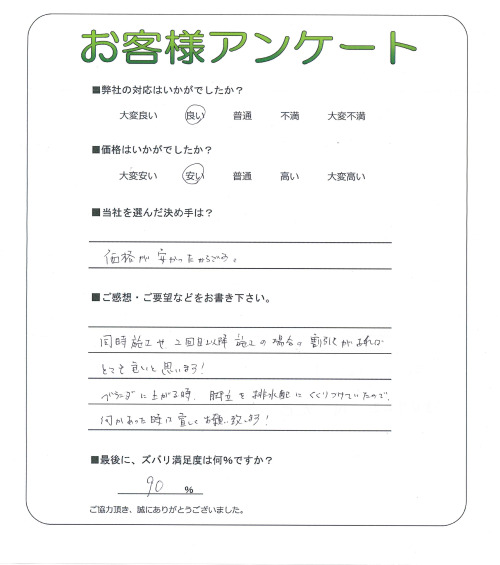 お客様アンケート
■弊社の対応はいかがでしたか？
大変良い 良い 普通 不満 大変不満
■価格はいかがでしたか？
大変安い 安い 普通 高い 大変高い
■当社を選んだ決め手は？
価格が安かったからです。
■ご感想・ご要望などをお書き下さい。
同時施工や2回目以降施工の場合の割引があれば
とても良いと思います！
ベランダに上がる時、脚立を排水配にくくりつけていたので、
何かあった時は宜しくお願い致します！
■最後に、ズバリ満足度は何%ですか？
90 %
ご協力頂き、誠にありがとうございました。